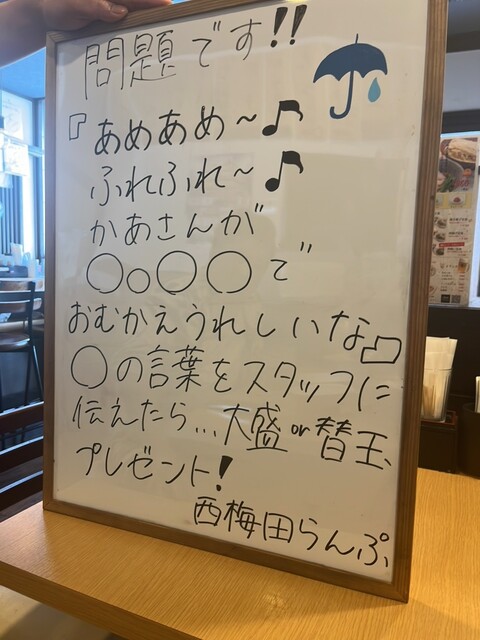 問題です!!
『あめあめ～♪
ふれふれ～♪
かあさんが
○o○○で
おむかえうれしいな』
○の言葉をスタッフに
伝えたら...大盛or替玉、
プレゼント!
西梅田らんぷ